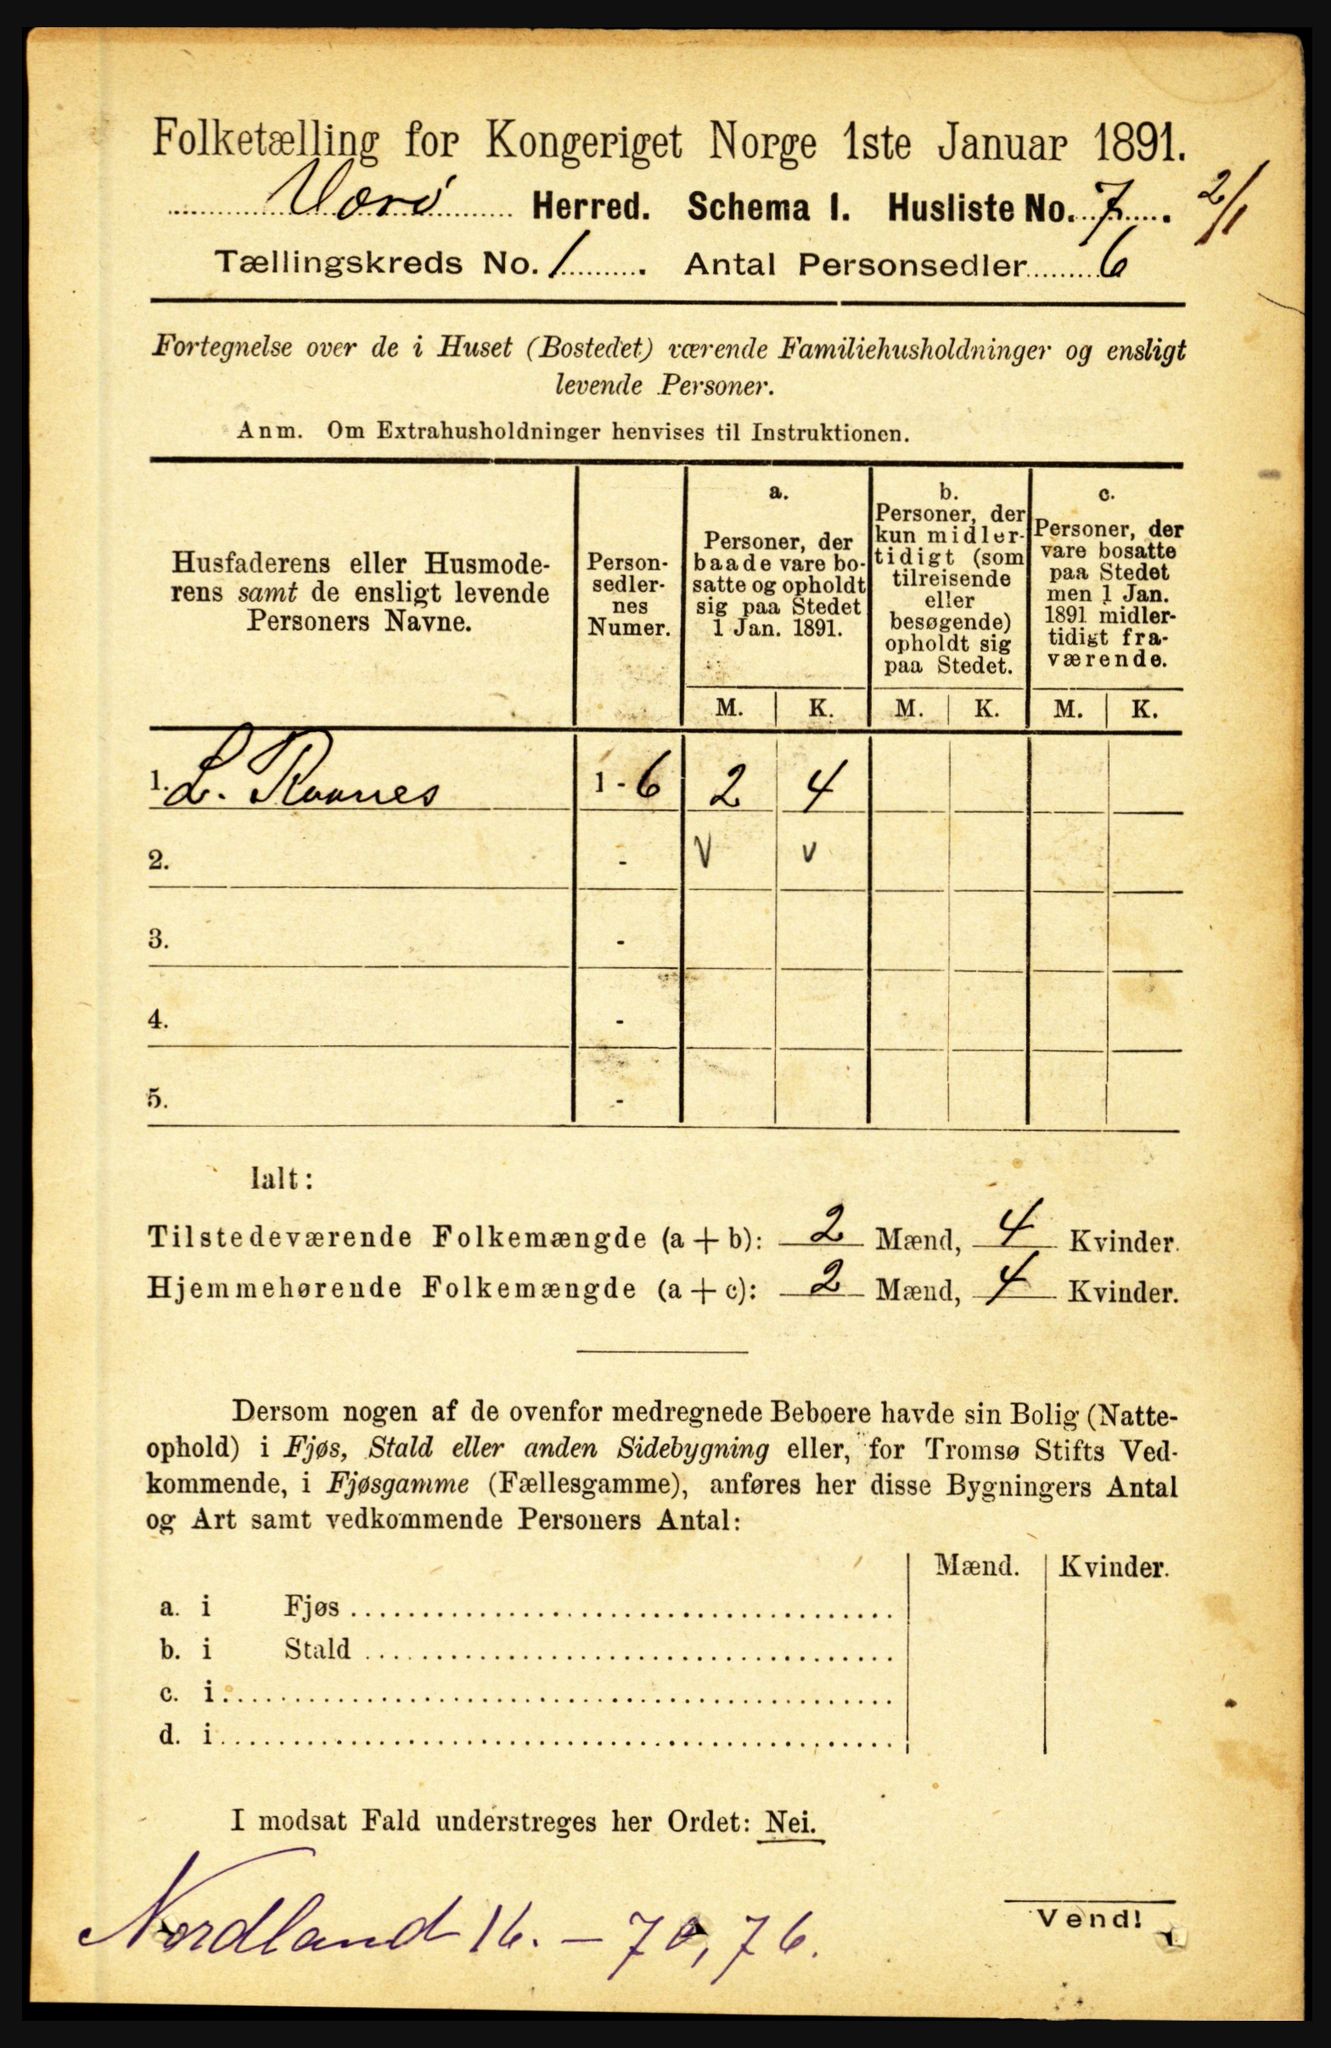 Folketælling for Kongeriget Norge 1ste Januar 1891.
Værø Herred. Schema I. Husliste No. 7. 2/1
Tællingskreds No. 1. Antal Personsedler 6
Fortegnelse over de i Huset (Bostedet) værende Familiehusholdninger og ensligt
levende Personer.
Anm. Om Extrahusholdninger henvises til Instruktionen.
Husfaderens eller Husmode-
rens samt de ensligt levende
Personers Navne.
Person-
sedler-
nes
Numer.
a.
Personer, der
baade vare bo-
satte og opholdt
sig paa Stedet
1 Jan. 1891.
b.
Personer, der
kun midler-
tidigt (som
tilreisende
eller
besøgende)
opholdt sig
paa Stedet.
c.
Personer, der
vare bosatte
paa Stedet
men 1 Jan.
1891 midler-
tidigt fra-
værende.
M. K. M. K. M. K.
1. L. 1 - 6 2 4
2. - v v
3. -
4. -
5. -
Ialt:
Tilstedeværende Folkemængde (a + b): 2 Mænd, 4 Kvinder.
Hjemmehørende Folkemængde (a + c): 2 Mænd, 4 Kvinder.
Dersom nogen af de ovenfor medregnede Beboere havde sin Bolig (Natte-
ophold) i Fjøs, Stald eller anden Sidebygning eller, for Tromsø Stifts Ved-
kommende, i Fjøsgamme (Fællesgamme), anføres her disse Bygningers Antal
og Art samt vedkommende Personers Antal:
Mænd. Kvinder.
a. i Fjøs
b. i Stald
c. i
d. i
I modsat Fald understreges her Ordet: Nei.
Vend!
Nordland 16. - 70, 76.